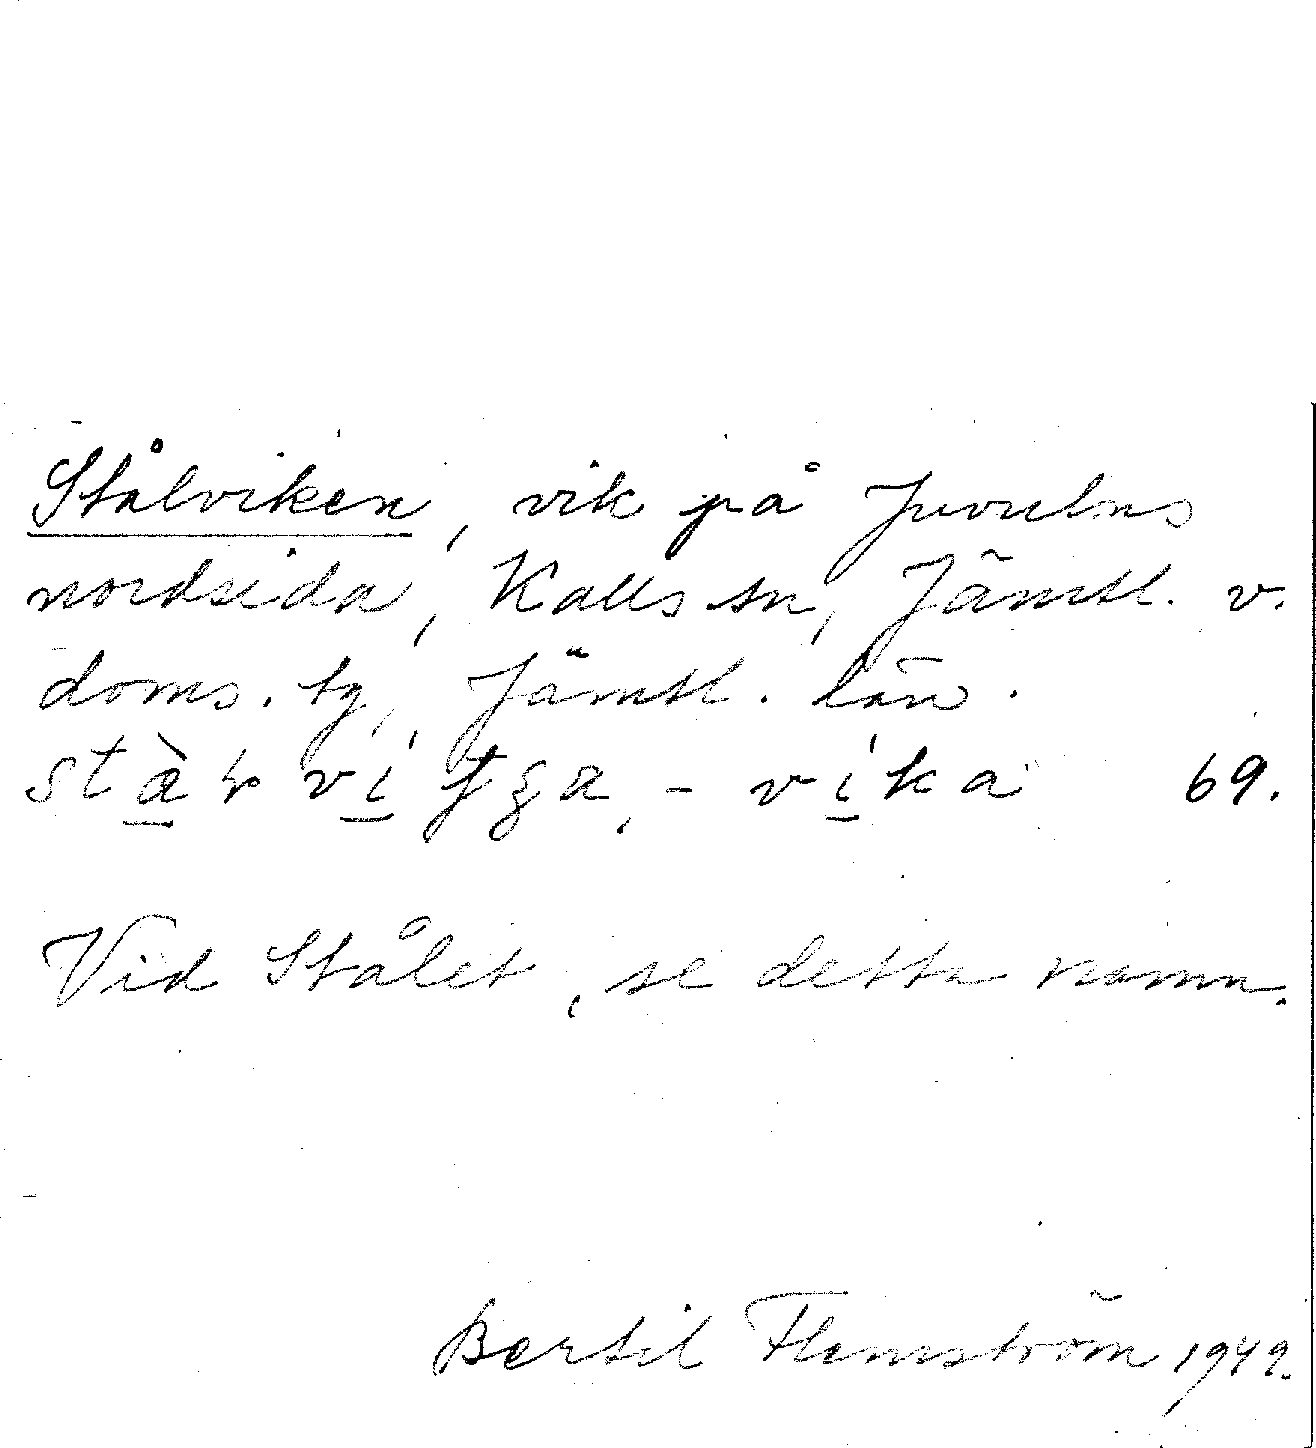 Stålviken, vik på Juvulns
nordsida, Kalls sn, Jämtl. v.
doms. tg, Jämtl. län.
- vika 69.
Vid Stålet, se detta namn.
Bertil Flemström 1949.